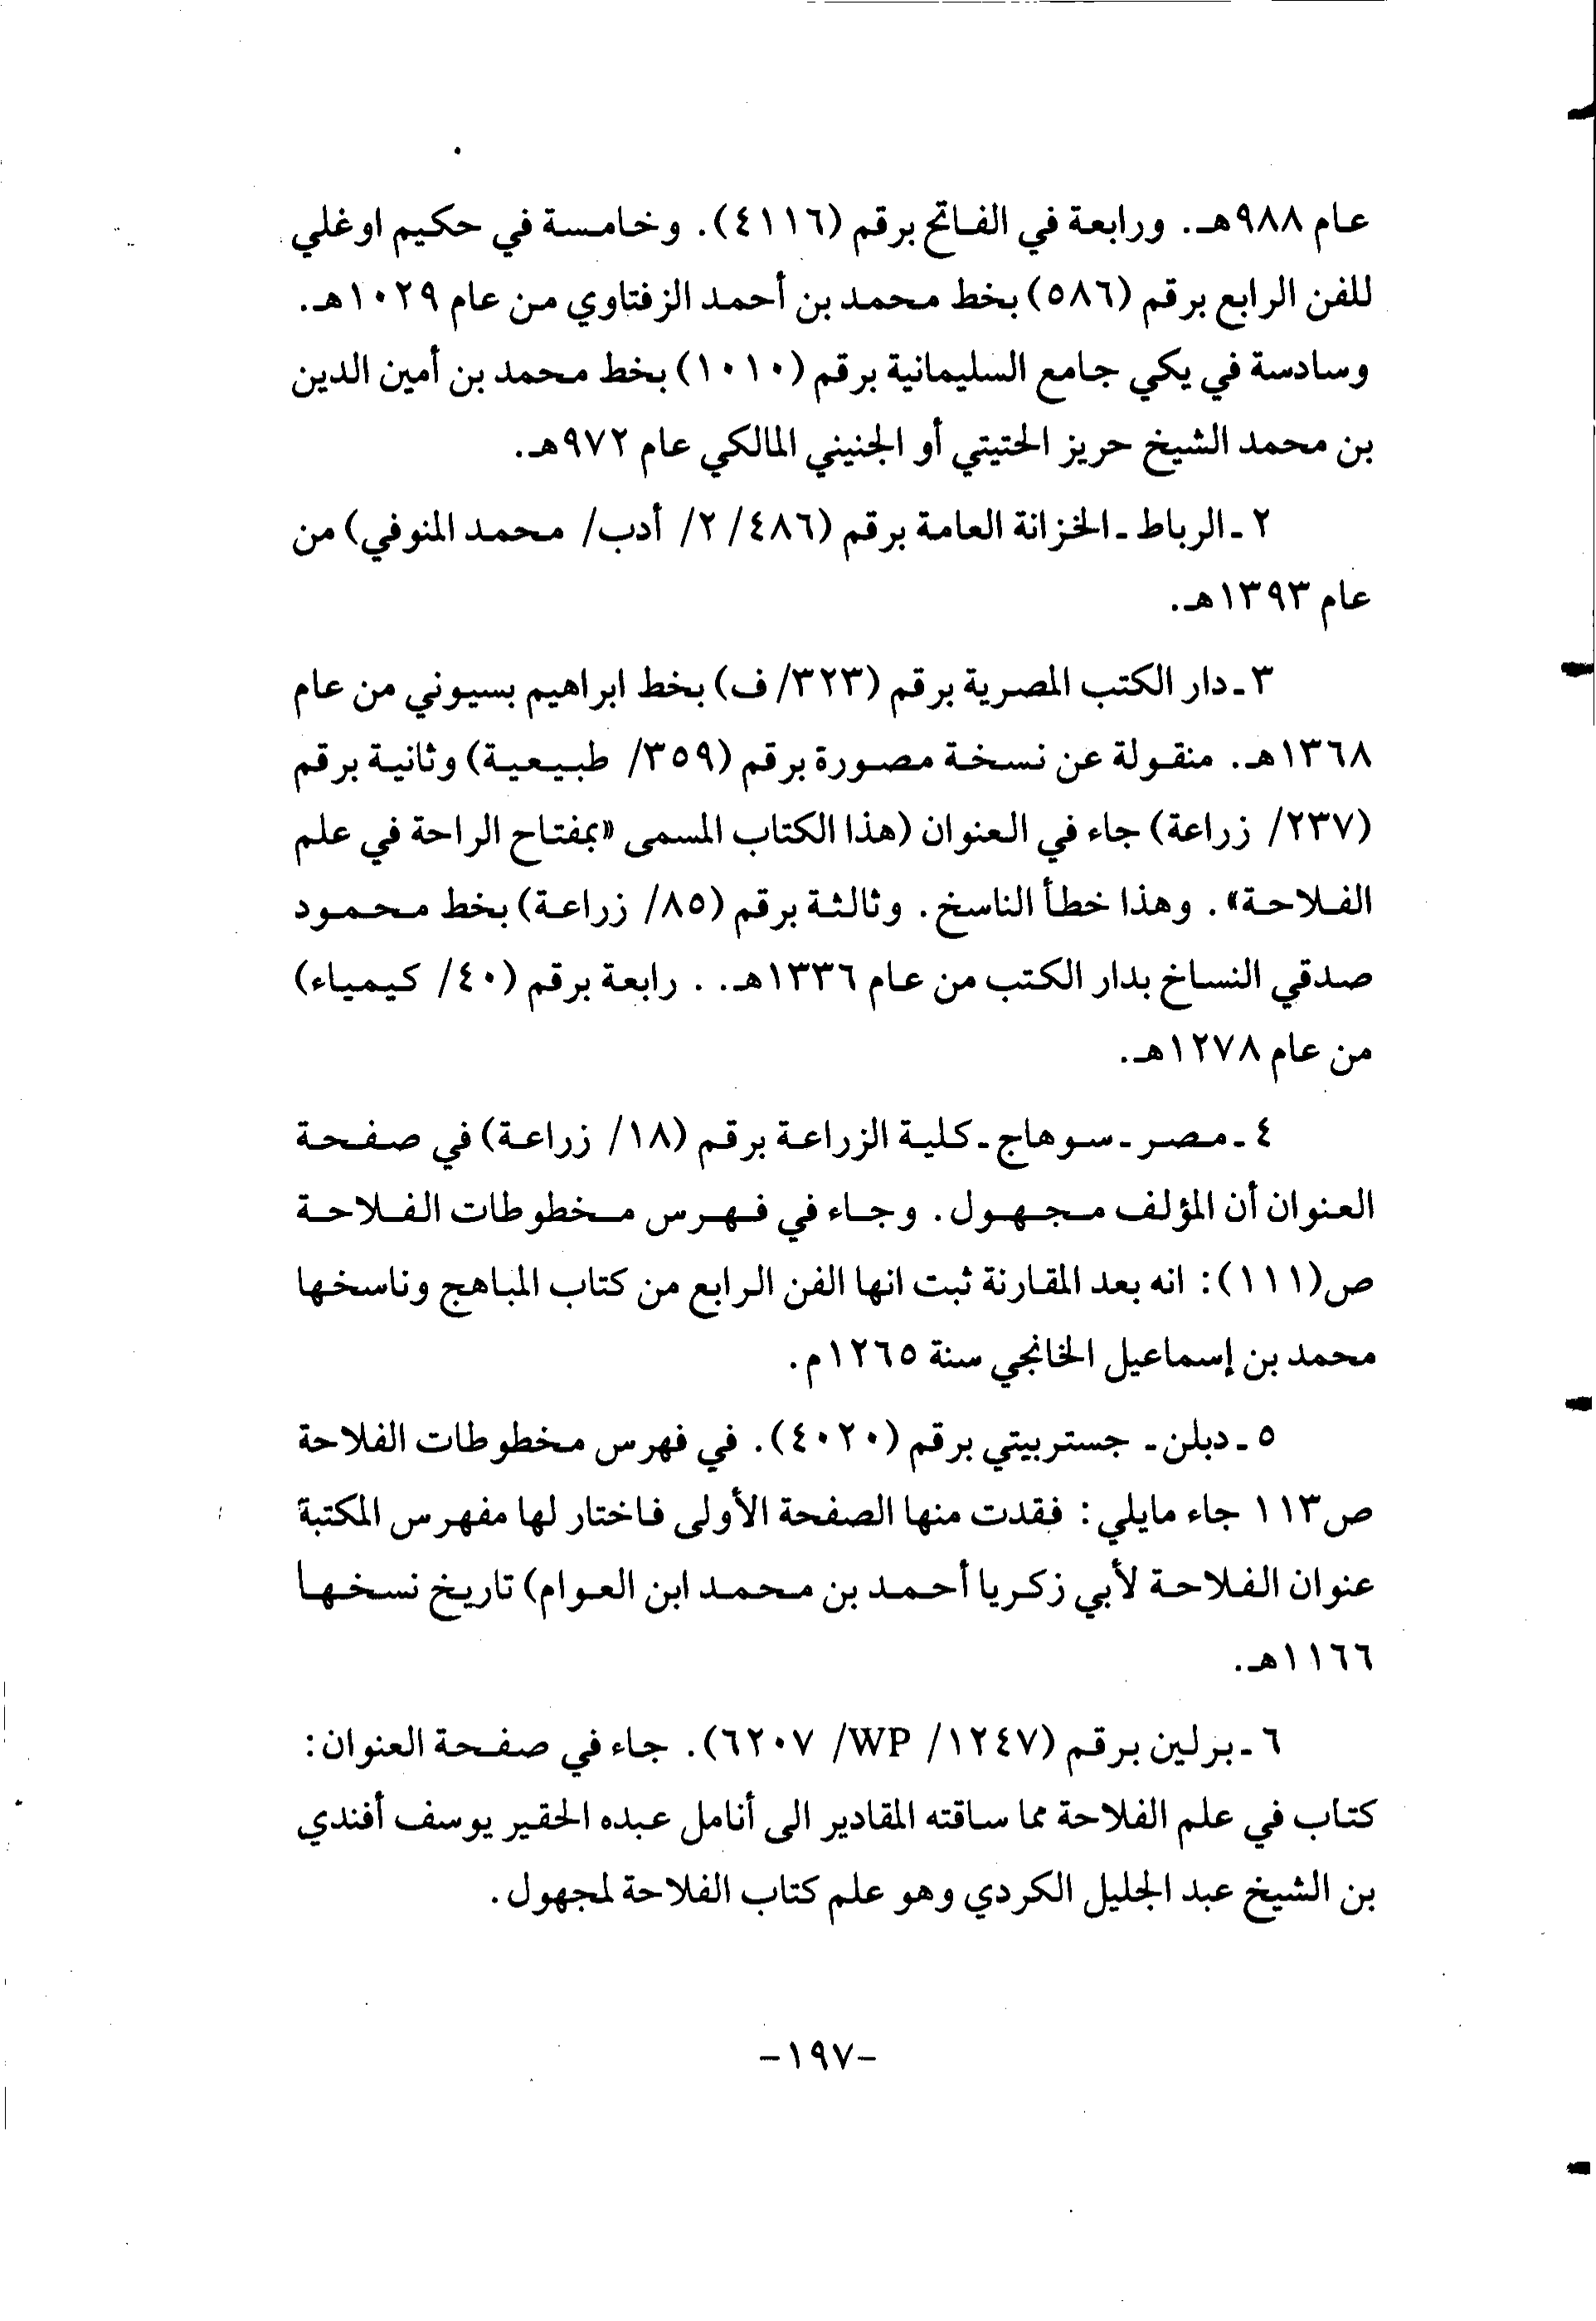 عام ٩٨٨هـ. ورابعة في الفاتح برقم (٤١١٦). وخامسة في حكيم اوغلي
للفن الرابع برقم (٥٨٦) بخط محمد بن أحمد الزفتاوي من عام ١٠٢٩هـ.
وسادسة في يكي جامع السليمانية برقم (١٠١٠) بخط محمد بن أمين الدين
بن محمد الشيخ حريز الحتيتي أو الجنيني المالكي عام ٩٧٢هـ.
٢ ـ الرباط ـ الخزانة العامة برقم (٤٨٦/ ٢/ أدب/ محمد المنوفي) من
عام ١٣٩٣هـ.
٣ ـ دار الكتب المصرية برقم (٣٢٣/ ف) بخط ابراهيم بسيوني من عام
١٣٦٨هـ. منقولة عن نسخة مصورة برقم (٣٥٩/ طبيعية) وثانية برقم
(٢٣٧/ زراعة) جاء في العنوان (هذا الكتاب المسمى «بمفتاح الراحة في علم
الفلاحة». وهذا خطأ الناسخ. وثالثة برقم (٨٥/ زراعة) بخط محمود
صدقي النساخ بدار الكتب من عام ١٣٣٦هـ. . رابعة برقم (٤٠/ كيمياء)
من عام ١٢٧٨هـ.
٤ ـ مصر ـ سوهاج ـ كلية الزراعة برقم (١٨/ زراعة) في صفحة
العنوان أن المؤلف مجهول. وجاء في فهرس مخطوطات الفلاحة
ص(١١١): انه بعد المقارنة ثبت انها الفن الرابع من كتاب المباهج وناسخها
محمد بن إسماعيل الخانجي سنة ١٢٦٥م.
٥ ـ دبلن ـ جستربيتي برقم (٤٠٢٠). في فهرس مخطوطات الفلاحة
ص١١٣ جاء مايلي: فقدت منها الصفحة الأولى فاختار لها مفهرس المكتبة
عنوان الفلاحة لأبي زكريا أحمد بن محمد ابن العوام) تاريخ نسخها
١١٦٦هـ.
٦ ـ برلين برقم (١٢٤٧/ WP/ ٦٢٠٧). جاء في صفحة العنوان:
كتاب في علم الفلاحة مما ساقته المقادير الى أنامل عبده الحقير يوسف أفندي
بن الشيخ عبد الجليل الكردي وهو علم كتاب الفلاحة لمجهول.
-١٩٧-